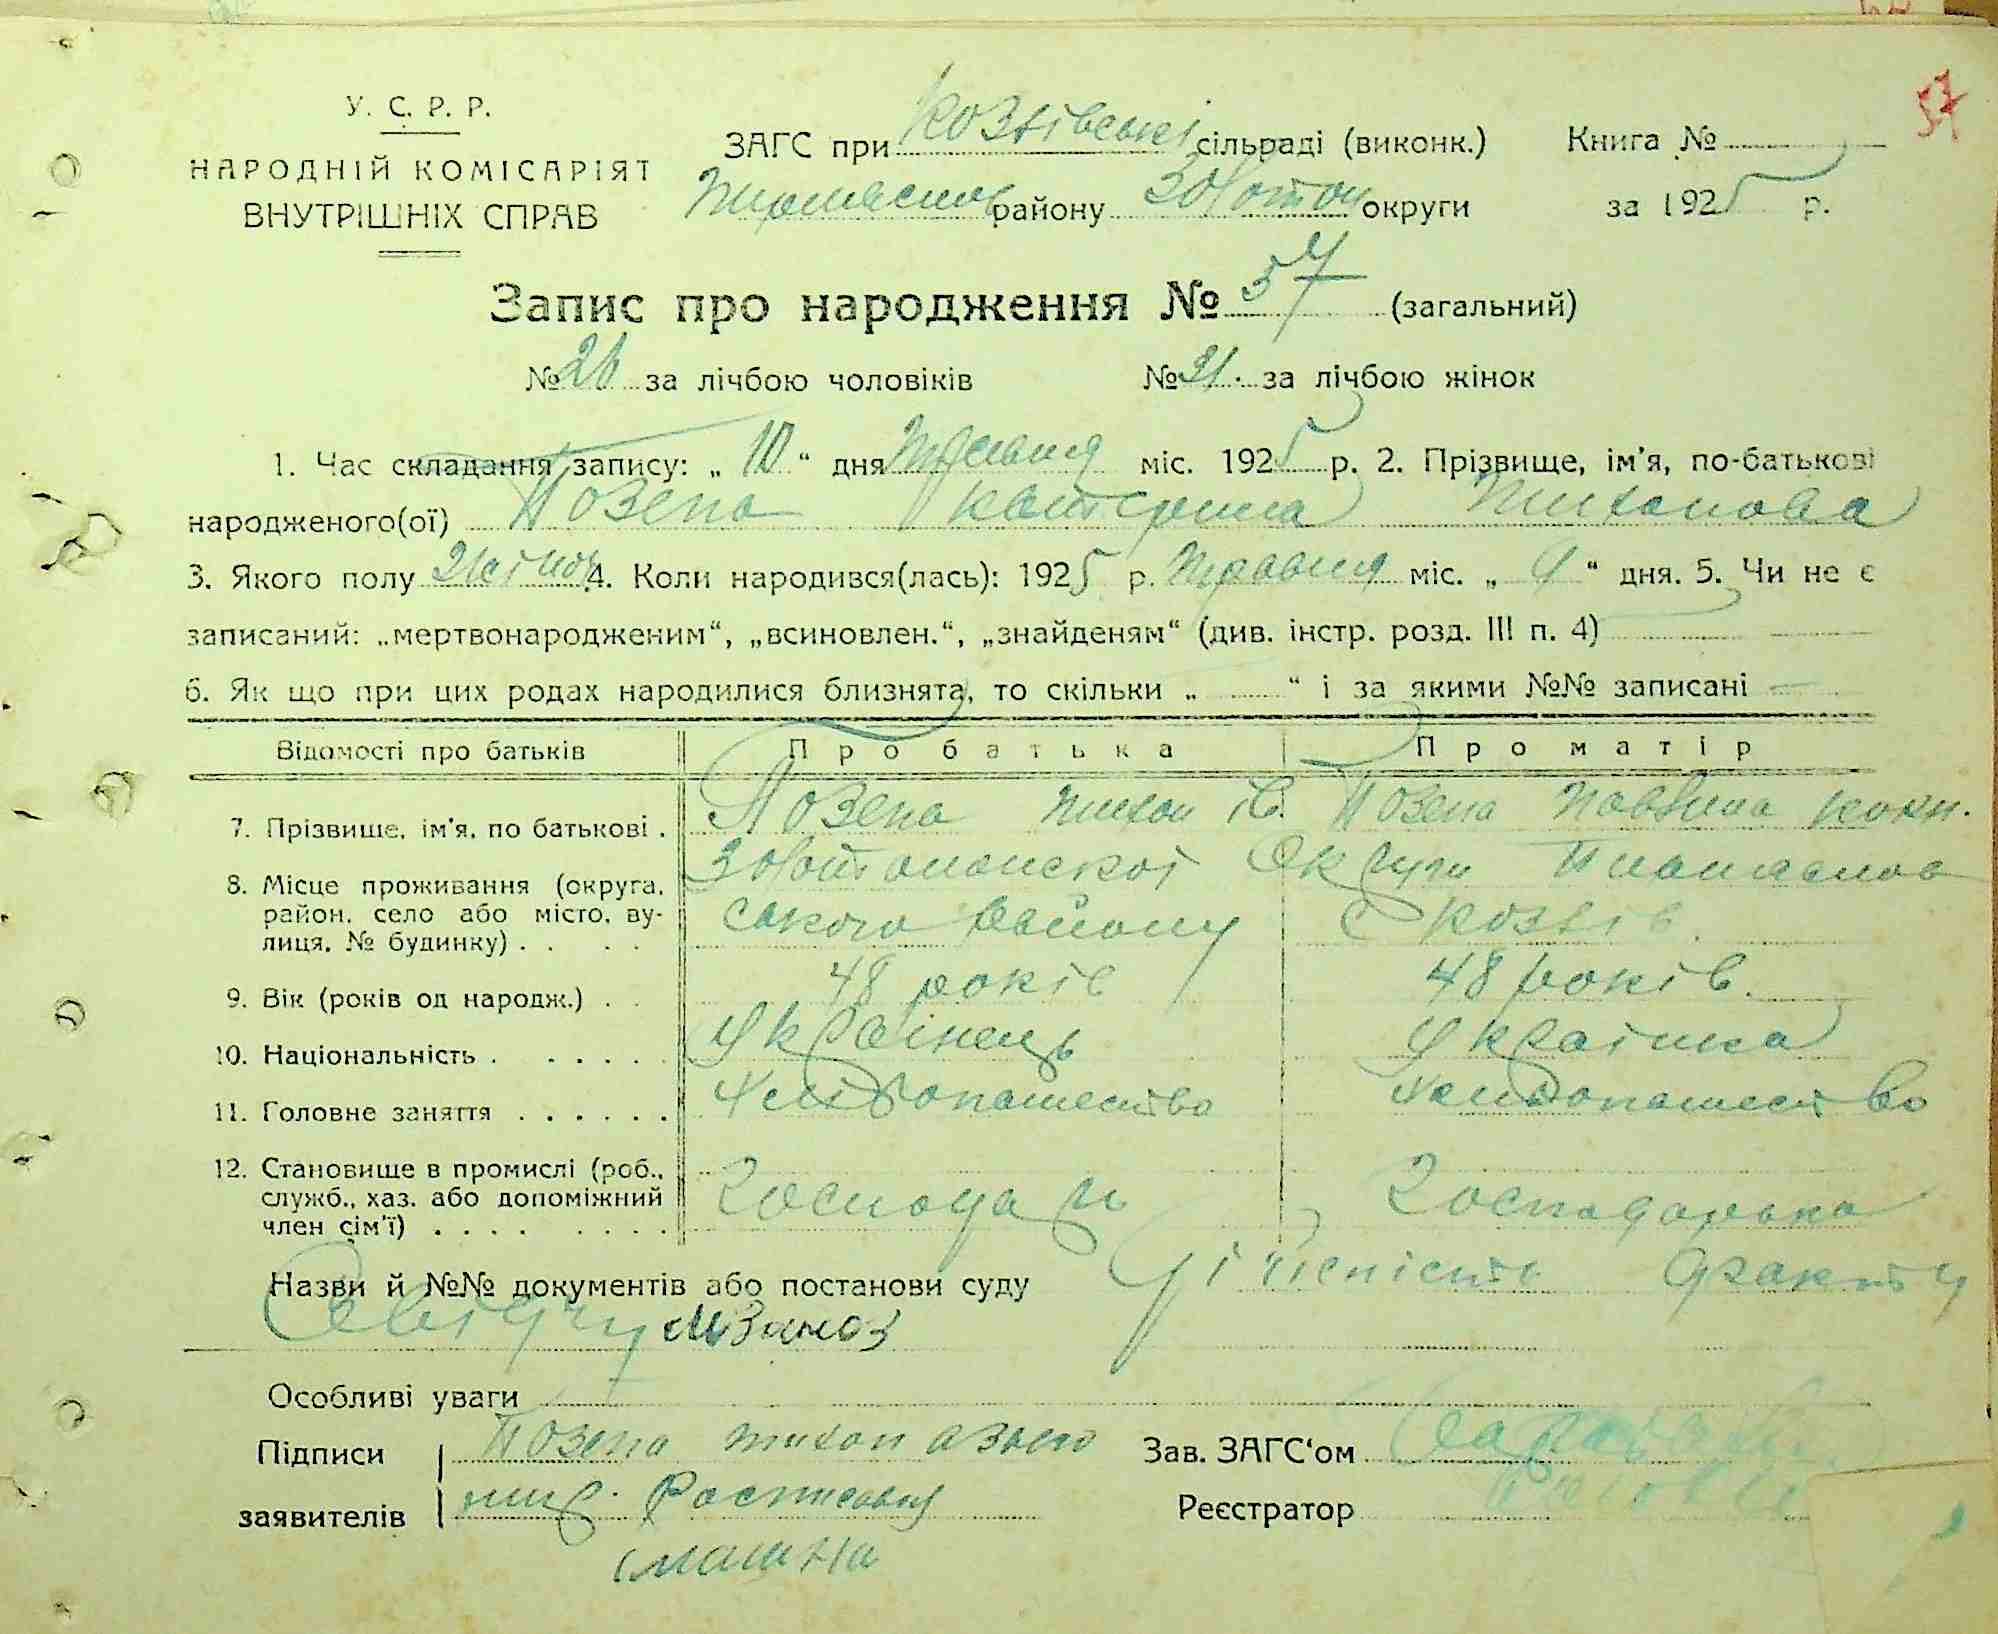 57
У. С. Р. Р.
НАРОДНІЙ КОМІСАРІЯТ
ВНУТРІШНІХ СПРАВ
ЗАГС при Козлівські сільраді (виконк.) Книга №
району Золотон округи за 1925 р.
Запис про народження № 57 (загальний)
№ 26 за лічбою чоловіків № 31. за лічбою жінок
1. Час складання запису: „ 10 “ дня Травня міс. 1925 р. 2. Прізвище, ім'я, по-батькові
народженого(ої) Позепа Катерина Тихонова
3. Якого полу Жіноч 4. Коли народився(лась): 1925 р. Травня міс. „ 9 “ дня. 5. Чи не є
записаний: „мертвонародженим“, „всиновлен.“, „знайденям“ (див. інстр. розд. III п. 4)
6. Як що при цих родах народилися близнята, то скільки „ “ і за якими №№ записані —
Відомості про батьків Про батька Про матір
7. Прізвище, ім'я, по батькові . Позепа Тихон Ів. Позепа
8. Місце проживання (округа, район, село або місто, вулиця, № будинку) . . Золотоноської Округи
ського Району с Козлів.
9. Вік (років од народж.) . . 48 років 48 років.
10. Національність . . . . . . Українець Українка
11. Головне заняття . . . . . . Хлібопашество Хлібопашество
12. Становище в промислі (роб., служб., хаз. або допоміжний член сім'ї) . . . . Господар Господарька
Назви й №№ документів або постанови суду Дійсність факту
Свідчу
Особливі уваги
Підписи Позепа Тихон а за його
заявителів
Зав. ЗАГС‘ом
Реєстратор